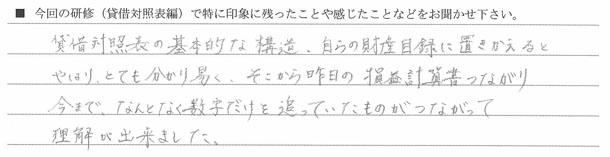 ■ 今回の研修（貸借対照表編）で特に印象に残ったことや感じたことなどをお聞かせ下さい。
貸借対照表の基本的な構造、自らの財産目録に置きかえると
やはり、とても分かり易く、そこから昨日の損益計算書つながり
今まで、なんとなく数字だけを追っていたものがつながって
理解が出来ました。